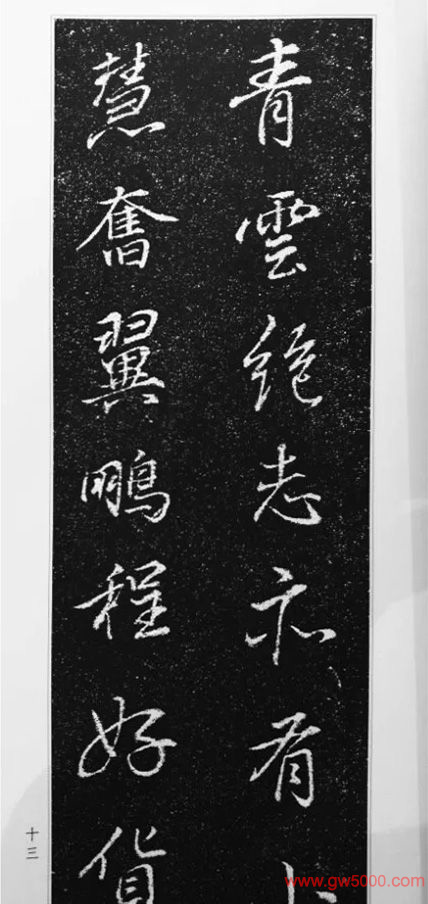 青雲絕志亦有
慧奮翼鵬程好貨
十三
www.gw5000.com